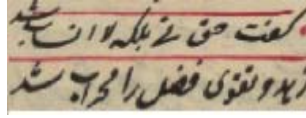 گفت حق نے بلکه لا انساب شد
زهد و تقوی فضل را محراب شد